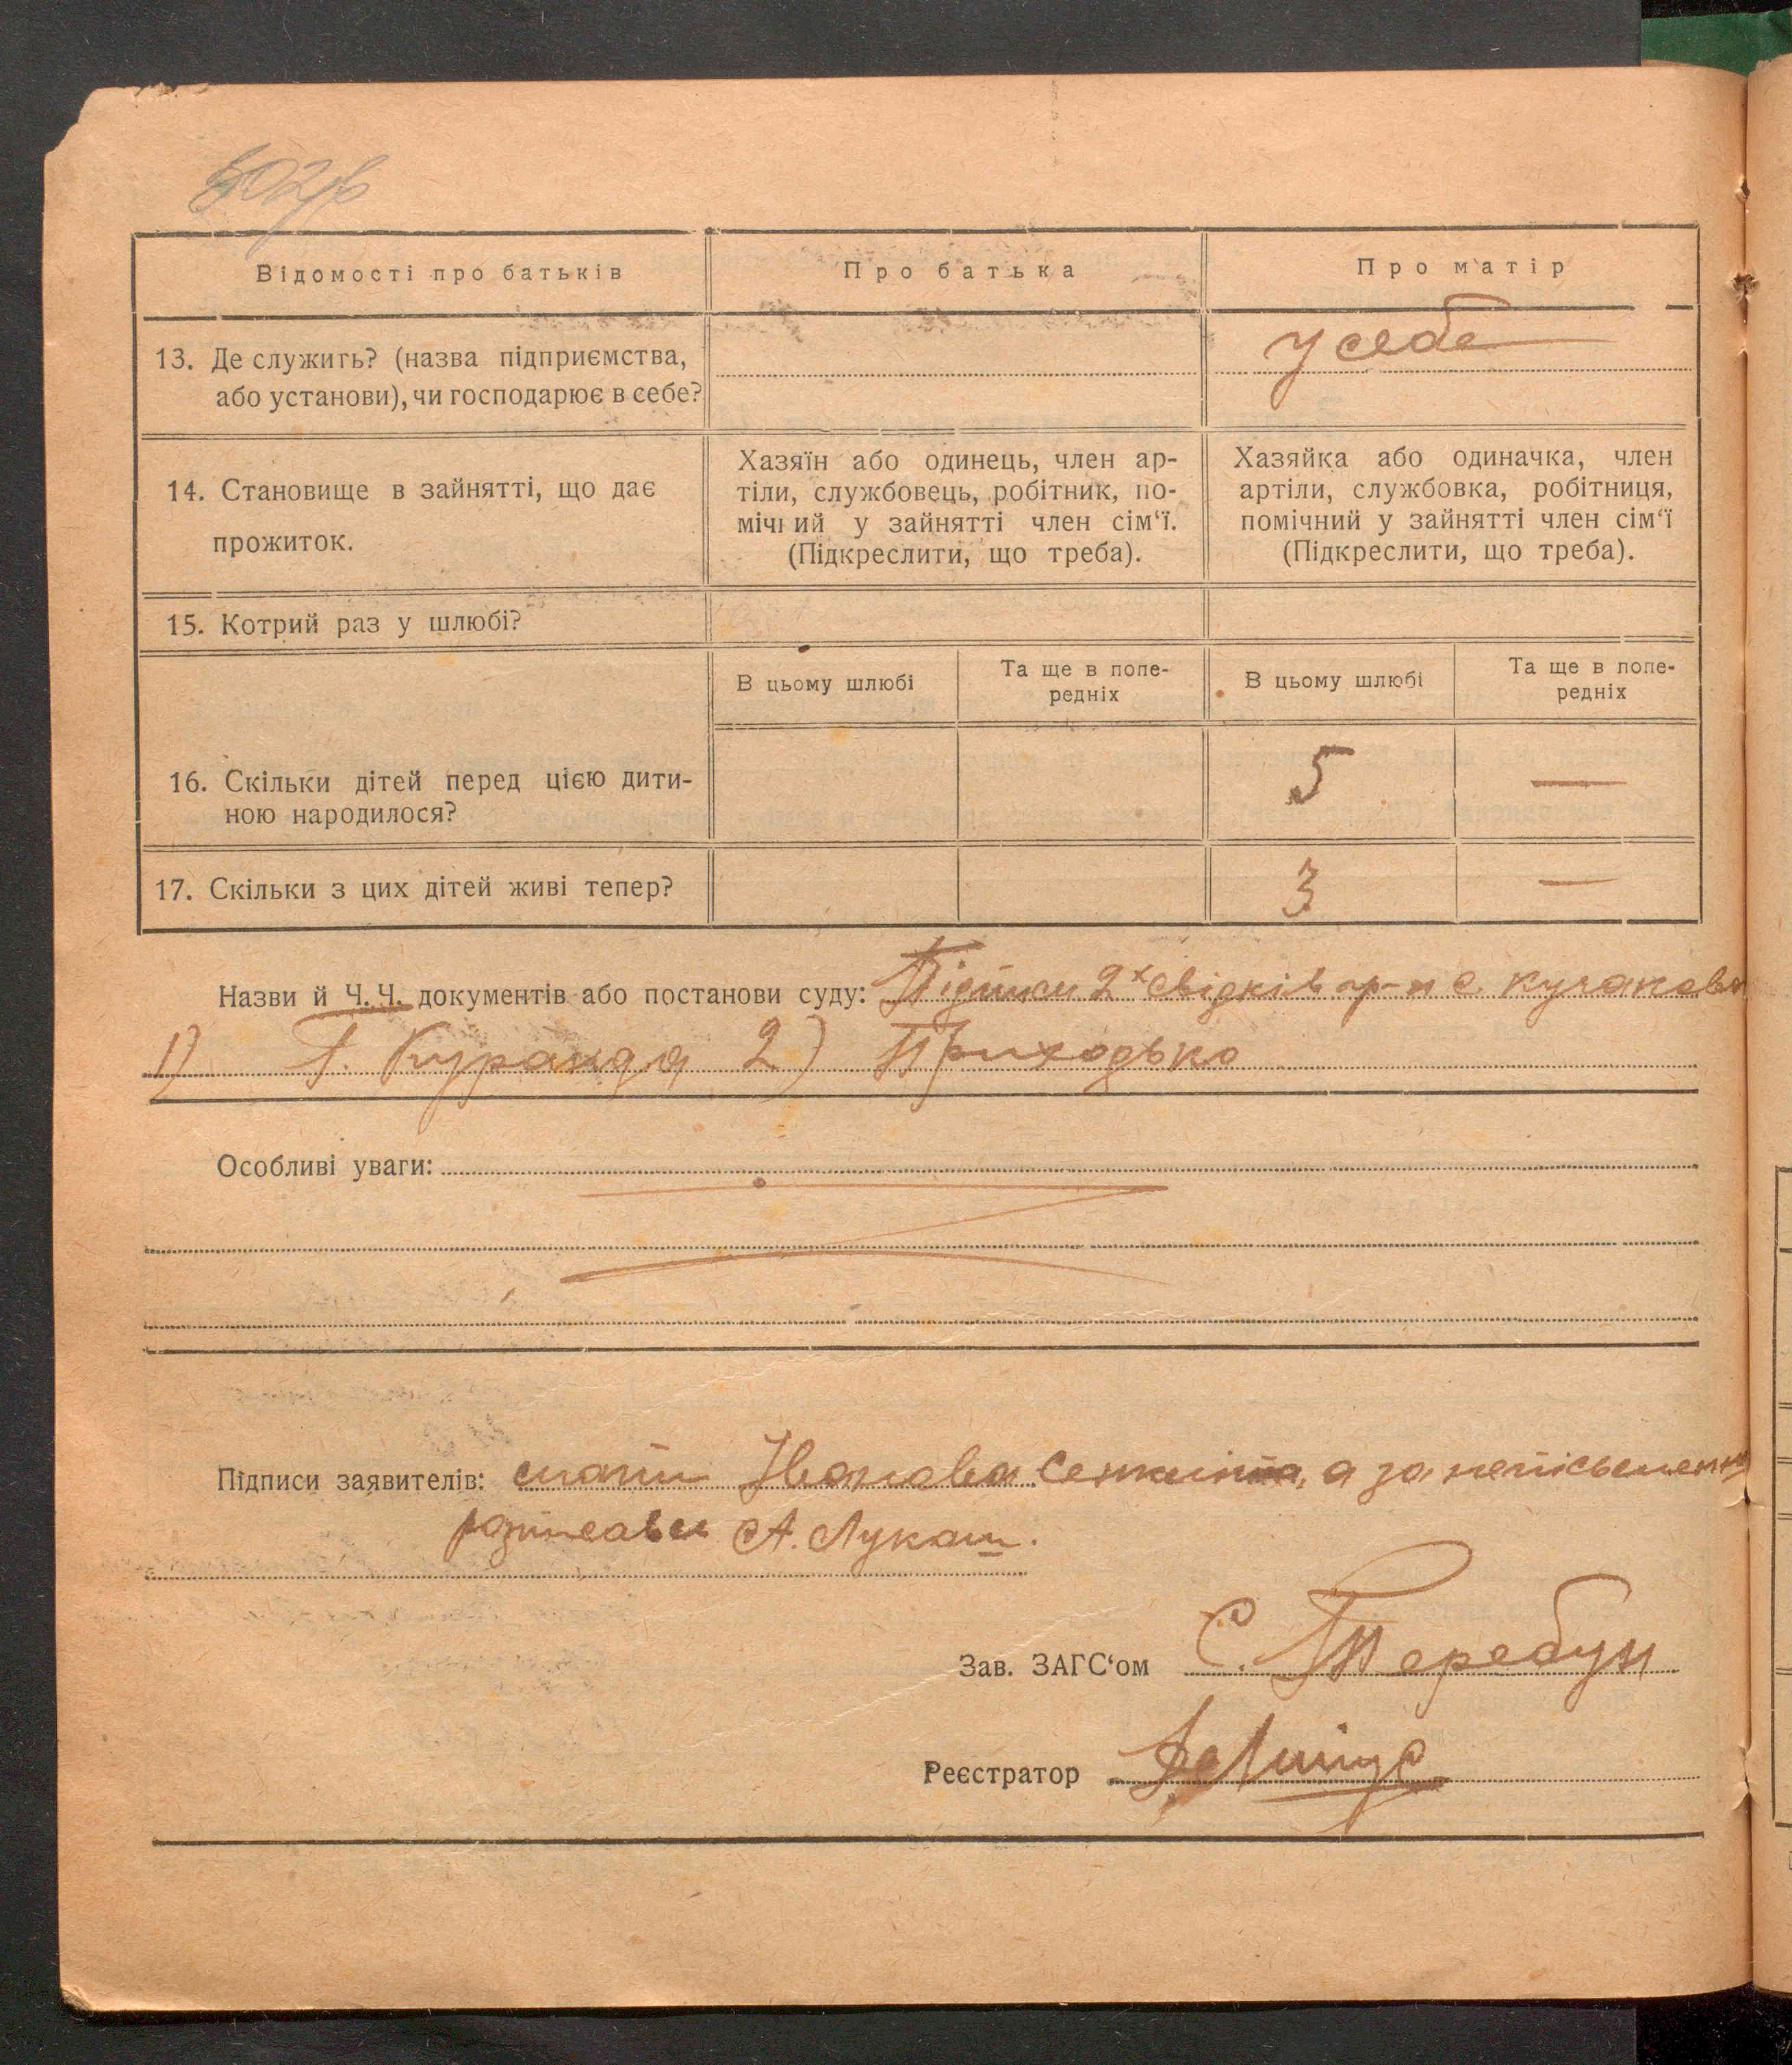 Відомості про батьків
Про батька
Про матір
13. Де служить? (назва підприємства,
або установи), чи господарює в себе?
у себе
14. Становище в зайнятті, що дає
прожиток.
Хазяїн або одинець, член ар-
тіли, службовець, робітник, по-
мічний у зайнятті член сім‘ї.
(Підкреслити, що треба).
Хазяйка або одиначка, член
артіли, службовка, робітниця,
помічний у зайнятті член сім‘ї
(Підкреслити, що треба).
15. Котрий раз у шлюбі?
В цьому шлюбі
Та ще в попе-
редніх
В цьому шлюбі
Та ще в попе-
редніх
16. Скільки дітей перед цією дити-
ною народилося?
5 —
17. Скільки з цих дітей живі тепер?
3 —
Назви й Ч.Ч. документів або постанови суду: Підписи 2х свідків гр-н с. Кучакова
1) Куранда 2) Приходько
Особливі уваги:
Підписи заявителів: мати Іванова а за неписьменну
А. Лукаш.
Зав. ЗАГС‘ом С. Теребун
Реєстратор